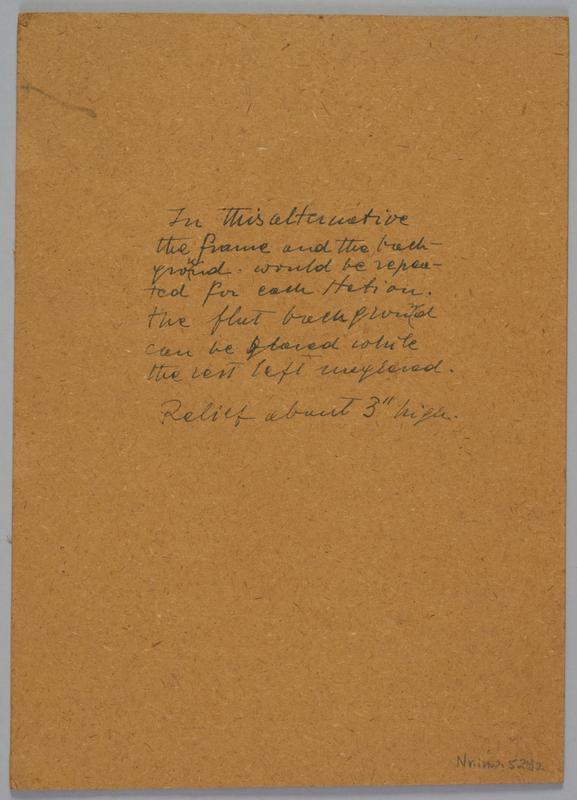 In this alternative
the frame and the back-
ground. would be repea-
ted for each Station.
the flat background
can be glazed while
the rest left unglazed.
Relief about 3" high.
Nr.inw.